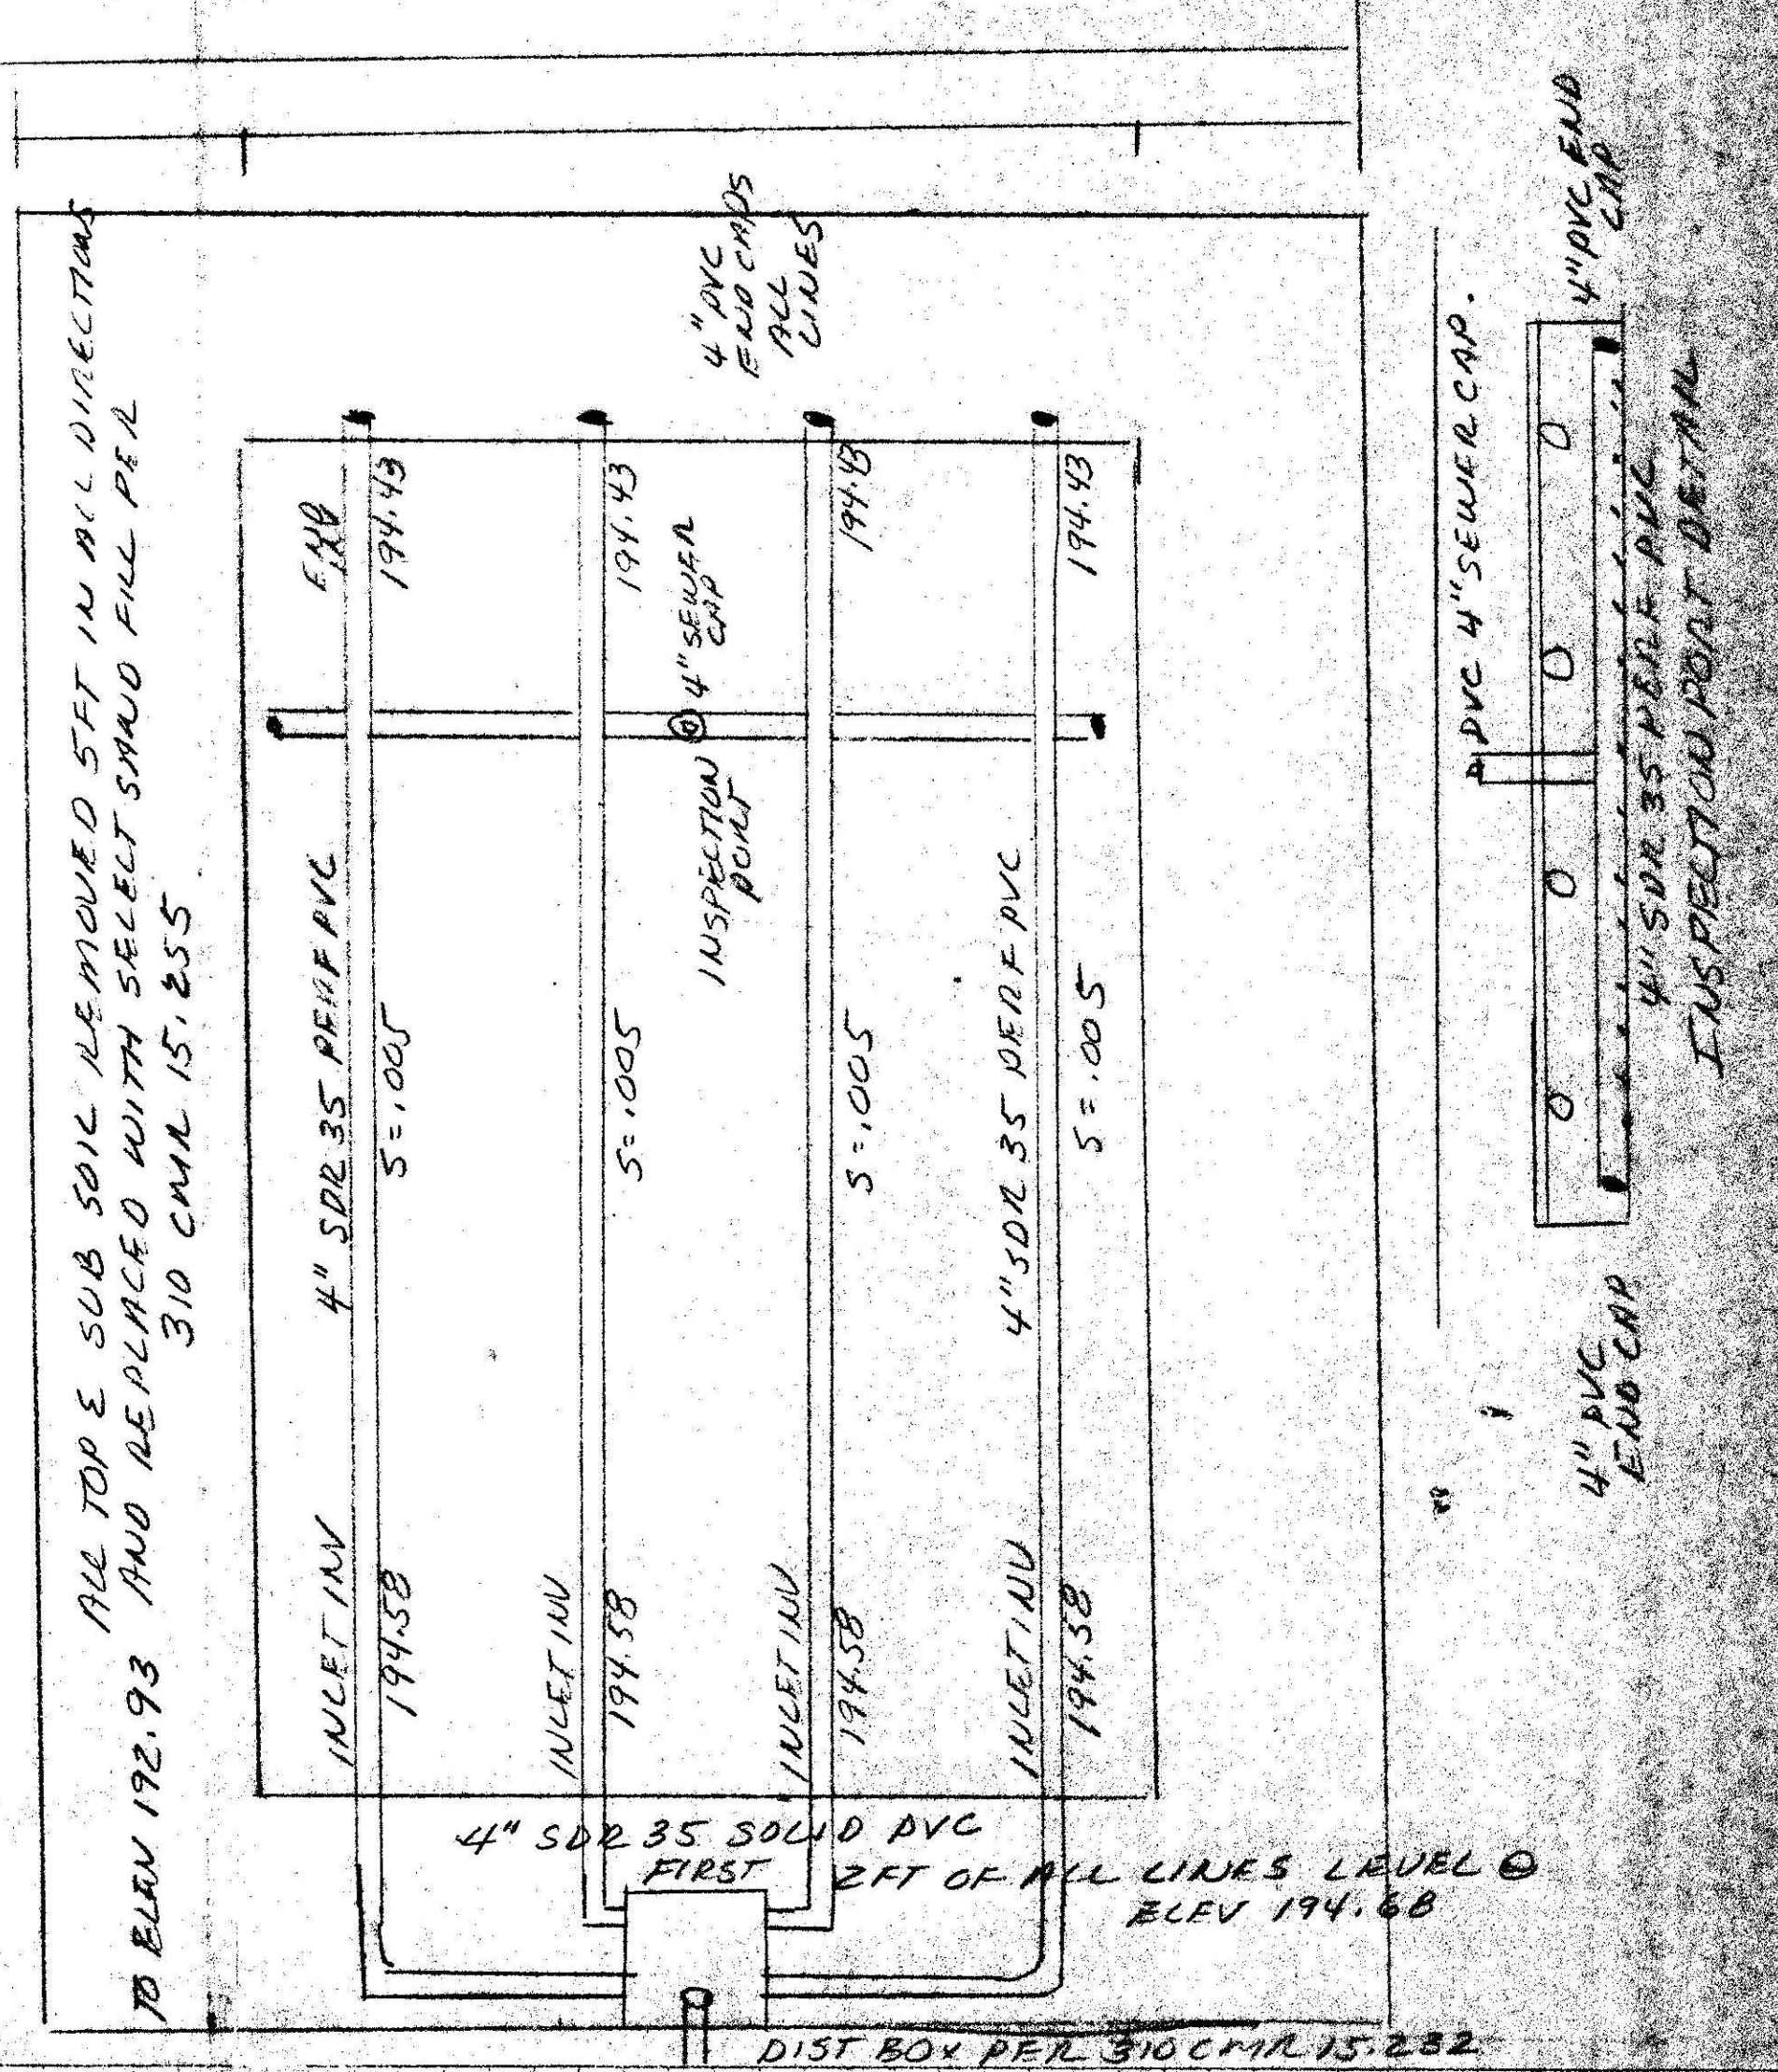 ALL TOP & SUB SOIL REMOVED 5FT IN ALL DIRECTIONS
TO ELEV 192.93 AND REPLACED WITH SELECT SAND FILL PER
310 CMR 15.255
INLET INV
194.58
4" SDR 35 PERF PVC
S=.005
END
INV
194.43
INLET INV
194.58
S=.005
194.43
INSPECTION
PORT
4" SEWER
CAP
4" PVC
END CAPS
ALL
LINES
INLET INV
194.58
S=.005
194.43
INLET INV
194.58
4" SDR 35 PERF PVC
S=.005
194.43
4" SDR 35 SOLID PVC
FIRST 2FT OF ALL LINES LEVEL @
ELEV 194.68
DIST BOX PER 310 CMR 15.232
PVC 4" SEWER CAP.
4" PVC
END CAP
4" PVC END
CAP
4" SDR 35 PERF PVC
INSPECTION PORT DETAIL